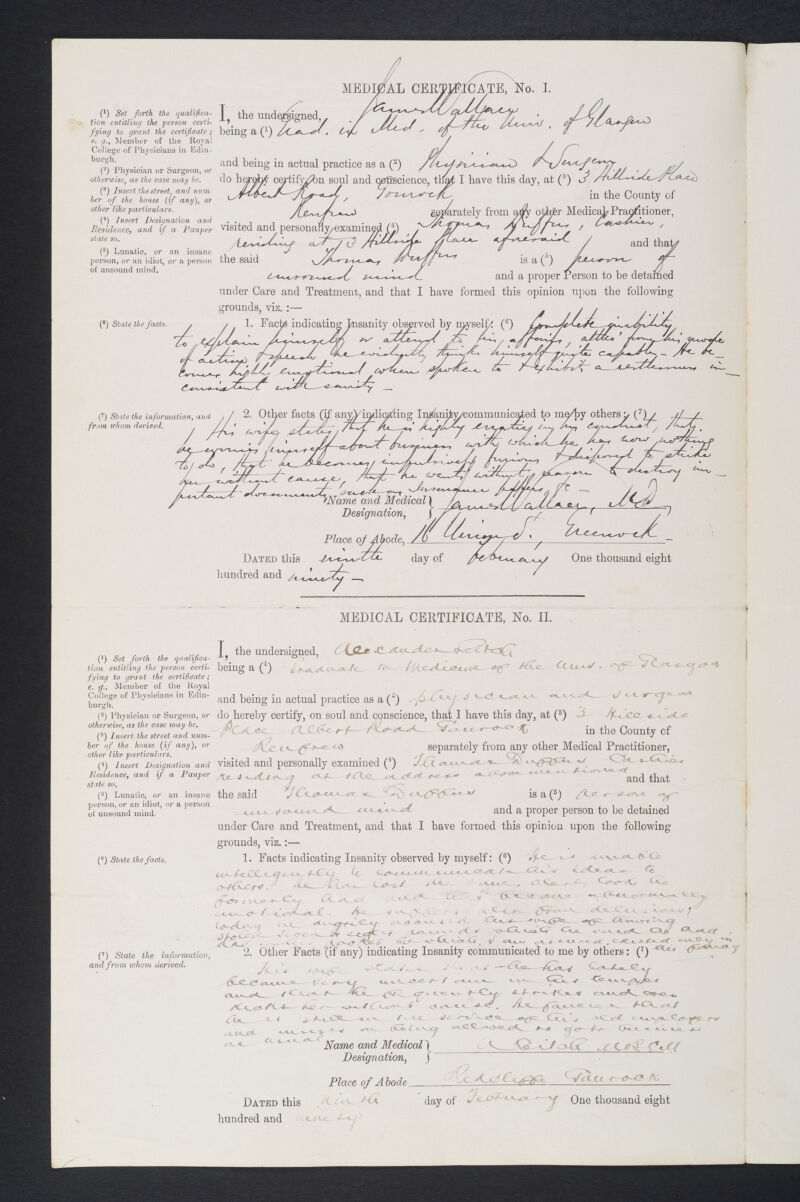 MEDICAL CERTIFICATE, No. I.
(1) Set forth the qualifica-
tion entitling the person certi-
fying to grant the certificate;
e. g., Member of the Royal
College of Physicians in Edin-
burgh.
(2) Physician or Surgeon, or
otherwise, as the case may be.
(3) Insert the street, and num-
ber of the house (if any), or
other like particulars.
(4) Insert Designation and
Residence, and if a Pauper
state so.
(5) Lunatic, or an insane
person, or an idiot, or a person
of unsound mind.
I, the undersigned, James Wallace
being a (1) Grad. in Med. of the Univ. of Glasgow
and being in actual practice as a (2) Physician & Surgeon
do hereby certify, on soul and conscience, that I have this day, at (3) 3 Hillside Place
Albert Road, Gourock in the County of
Renfrew separately from any other Medical Practitioner,
visited and personally examined (4) Thomas Duffus, Cashier,
residing at 3 Hillside Place aforesaid and that
the said Thomas Duffus is a (5) person of
unsound mind and a proper Person to be detained
under Care and Treatment, and that I have formed this opinion upon the following
grounds, viz. :—
(6) State the facts.
1. Facts indicating Insanity observed by myself: (6) Complete inability
to explain himself or attend to his affairs, altho' from his mode
of action & speech he evidently thinks himself quite capable – He be-
comes highly emotional when spoken to & exhibits a restlessness in-
consistent with sanity –
(7) State the information, and
from whom derived.
2. Other facts (if any) indicating Insanity communicated to me by others: (7)
His wife states that he is highly erratic in his conduct, that
he worries himself about business with which he has now nothing
to do, that he becomes impulsively furious & disposed to strike
her without cause, that he wants without reason to destroy im-
portant documents, such as Insurance papers, &c –
Name and Medical Designation, James Wallace, M.D.,
Place of Abode, 16 Union St., Greenock –
DATED this ninth day of February One thousand eight
hundred and ninety –
MEDICAL CERTIFICATE, No. II.
(1) Set forth the qualifica-
tion entitling the person certi-
fying to grant the certificate;
e. g., Member of the Royal
College of Physicians in Edin-
burgh.
(2) Physician or Surgeon, or
otherwise, as the case may be.
(3) Insert the street and num-
ber of the house (if any), or
other like particulars.
(4) Insert Designation and
Residence, and if a Pauper
state so.
(5) Lunatic, or an insane
person, or an idiot, or a person
of unsound mind.
I, the undersigned, Alexander
being a (1) Graduate in Medicine of the Univ. of Glasgow
and being in actual practice as a (2) physician and surgeon
do hereby certify, on soul and conscience, that I have this day, at (3) 3 Hillside
Place Albert Road Gourock in the County of
Renfrew separately from any other Medical Practitioner,
visited and personally examined (4) Thomas Duffus Cashier
residing at the address above mentioned and that
the said Thomas Duffus is a (5) person of
unsound mind and a proper person to be detained
under Care and Treatment, and that I have formed this opinion upon the following
grounds, viz. :—
(6) State the facts.
1. Facts indicating Insanity observed by myself: (6) He is unable
intelligently to communicate his ideas to
others. He has lost the same alert look he
formerly had and has become abnormally
emotional. He suffers also from delusions;
today he angrily accused his wife of having
stolen seven or eight pounds which he said he had
in his pocket but which, I am assured, existed only in
his fancy
(7) State the information,
and from whom derived.
2. Other Facts (if any) indicating Insanity communicated to me by others: (7)
His wife states that he has lately
become very uncertain in his temper
and that he frequently strikes and even
kicks her without cause. He fancies that
he is still in the service of his old employers
and insists on being allowed to go to business
as usual
Name and Medical Designation, M.B. C.M
Place of Abode Redcliffe Gourock
DATED this ninth day of February One thousand eight
hundred and ninety